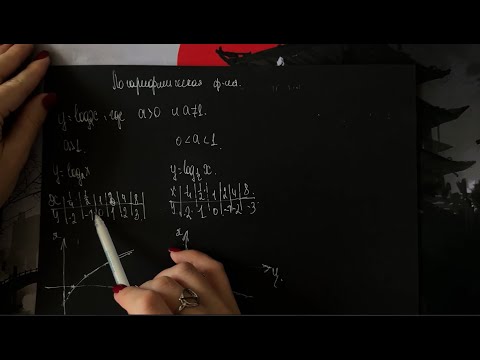 Логарифмическая ф-ия.
y=logₐx, где a>0 и a≠1.
a>1. 0<a<1.
y=log₂x y=log½x.
x 1/4 1/2 1 2 4 8 x 1/4 1/2 1 2 4 8
y -2 -1 0 1 2 3 y 2 1 0 -1 -2 -3
x x
>y.